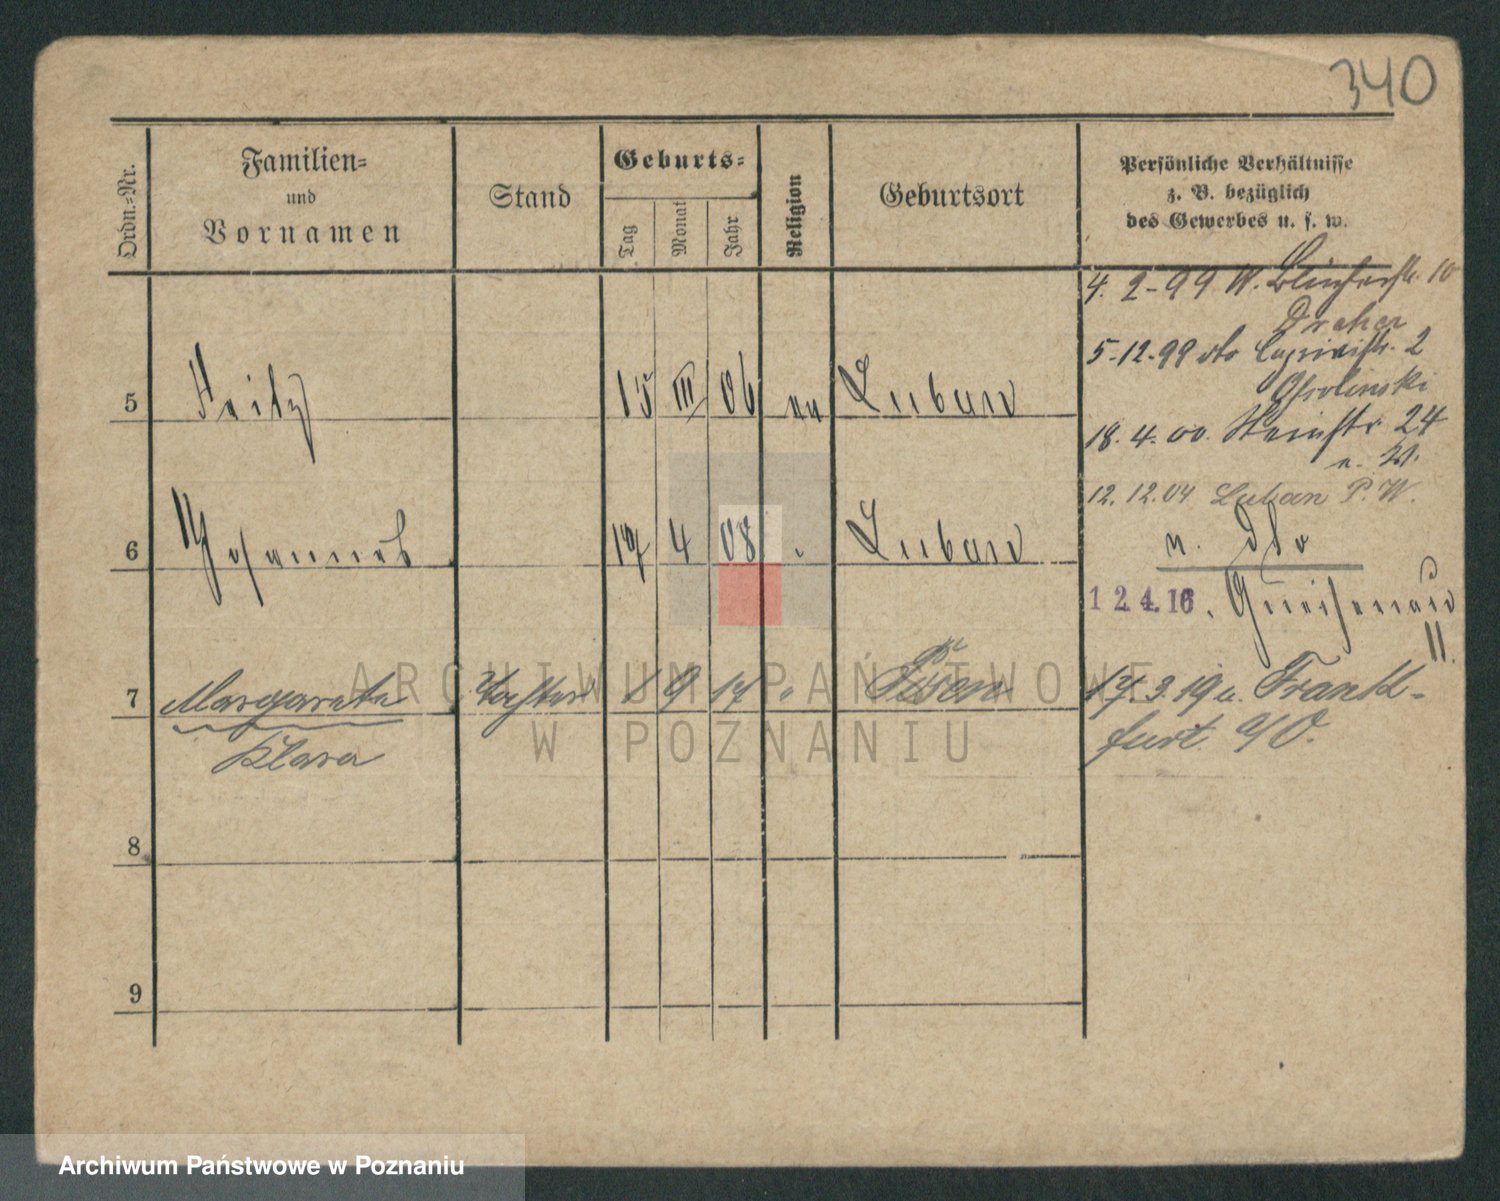 340
Ordn.-Nr.
Familien-
und
Vornamen
Stand
Geburts-
Tag
Monat
Jahr
Religion
Geburtsort
Persönliche Verhältnisse
z. B. bezüglich
des Gewerbes u. s. w.
4. 2. 99 W. 10
Dreher
5. 12. 99 dto Caprivistr. 2
5 Fritz 15 III 06 ev Luban
18. 4. 00. Steinstr. 24
n. W.
12. 12. 04 Luban P. W.
6 Johannes 17 4 08 " Luban
n. dto
12.4.16. Gneisenau
11.
7 Margarete Tochter 1 9 17 " Posen
Klara
17. 3. 19 n. Frank-
furt a/O.
8
9
ARCHIWUM PAŃSTWOWE
W POZNANIU
Archiwum Państwowe w Poznaniu